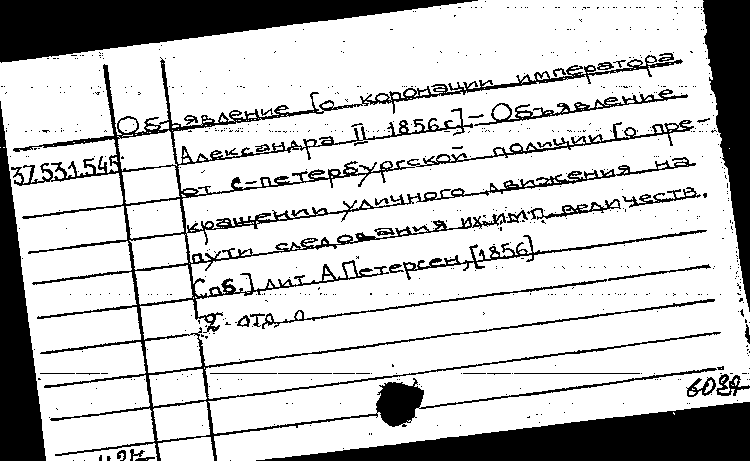 Объявление [о коронации императора
37.531.545 Александра II 1856г.].- Объявление
от с-петербургской полиции [о пре-
кращении уличного движения на
пути следования их.имп.величеств.
Спб.], лит. А.Петерсен, [1856].
2